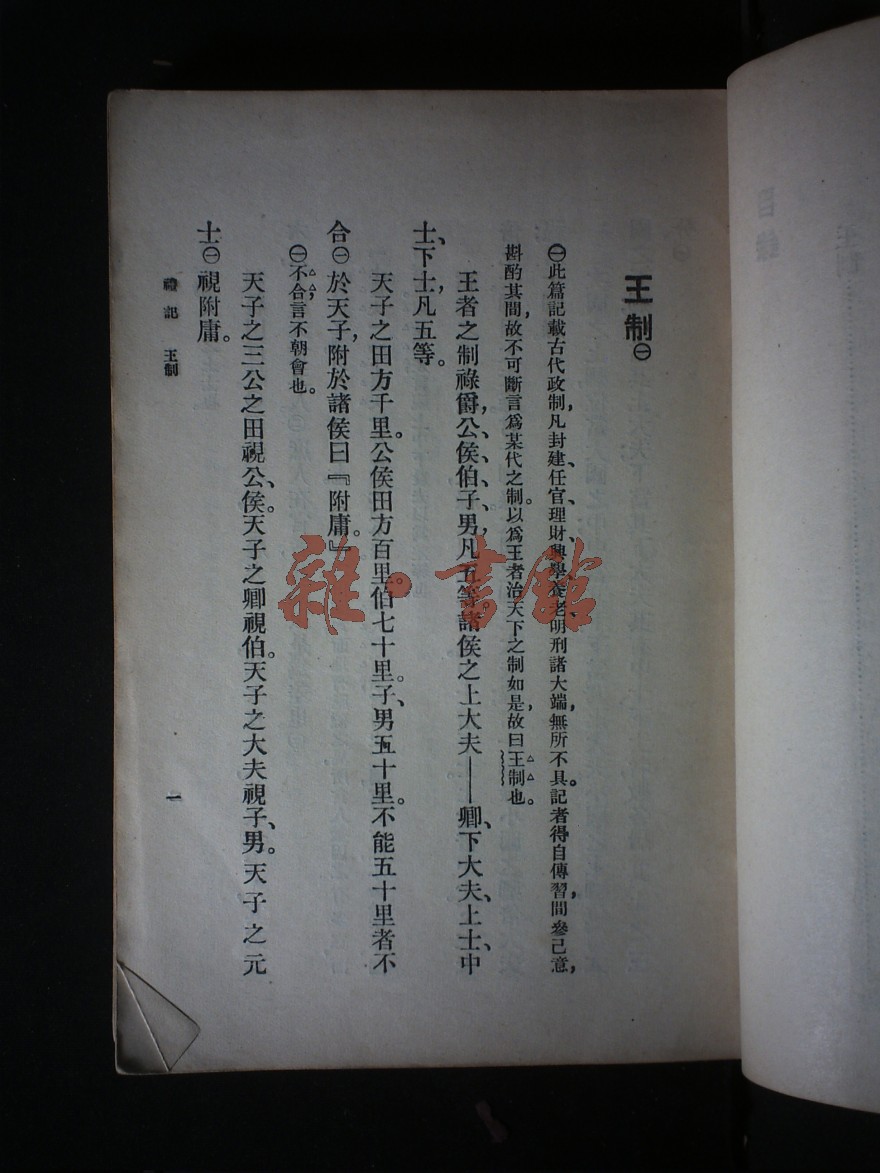 王制㊀
㊀此篇記載古代政制，凡封建、任官、理財、興學、養老、明刑諸大端，無所不具。記者得自傳習，間參己意，
斟酌其間，故不可斷言爲某代之制。以爲王者治天下之制如是，故曰王制也。
王者之制祿爵，公、侯、伯、子、男，凡五等。諸侯之上大夫——卿、下大夫、上士、中
士、下士，凡五等。
天子之田方千里。公侯田方百里。伯七十里。子、男五十里。不能五十里者不
合㊀於天子，附於諸侯曰『附庸。』
㊀不合，言不朝會也。
天子之三公之田視公、侯。天子之卿視伯。天子之大夫視子、男。天子之元
士㊀視附庸。
禮記 王制
一
雜·書館
目錄
王制